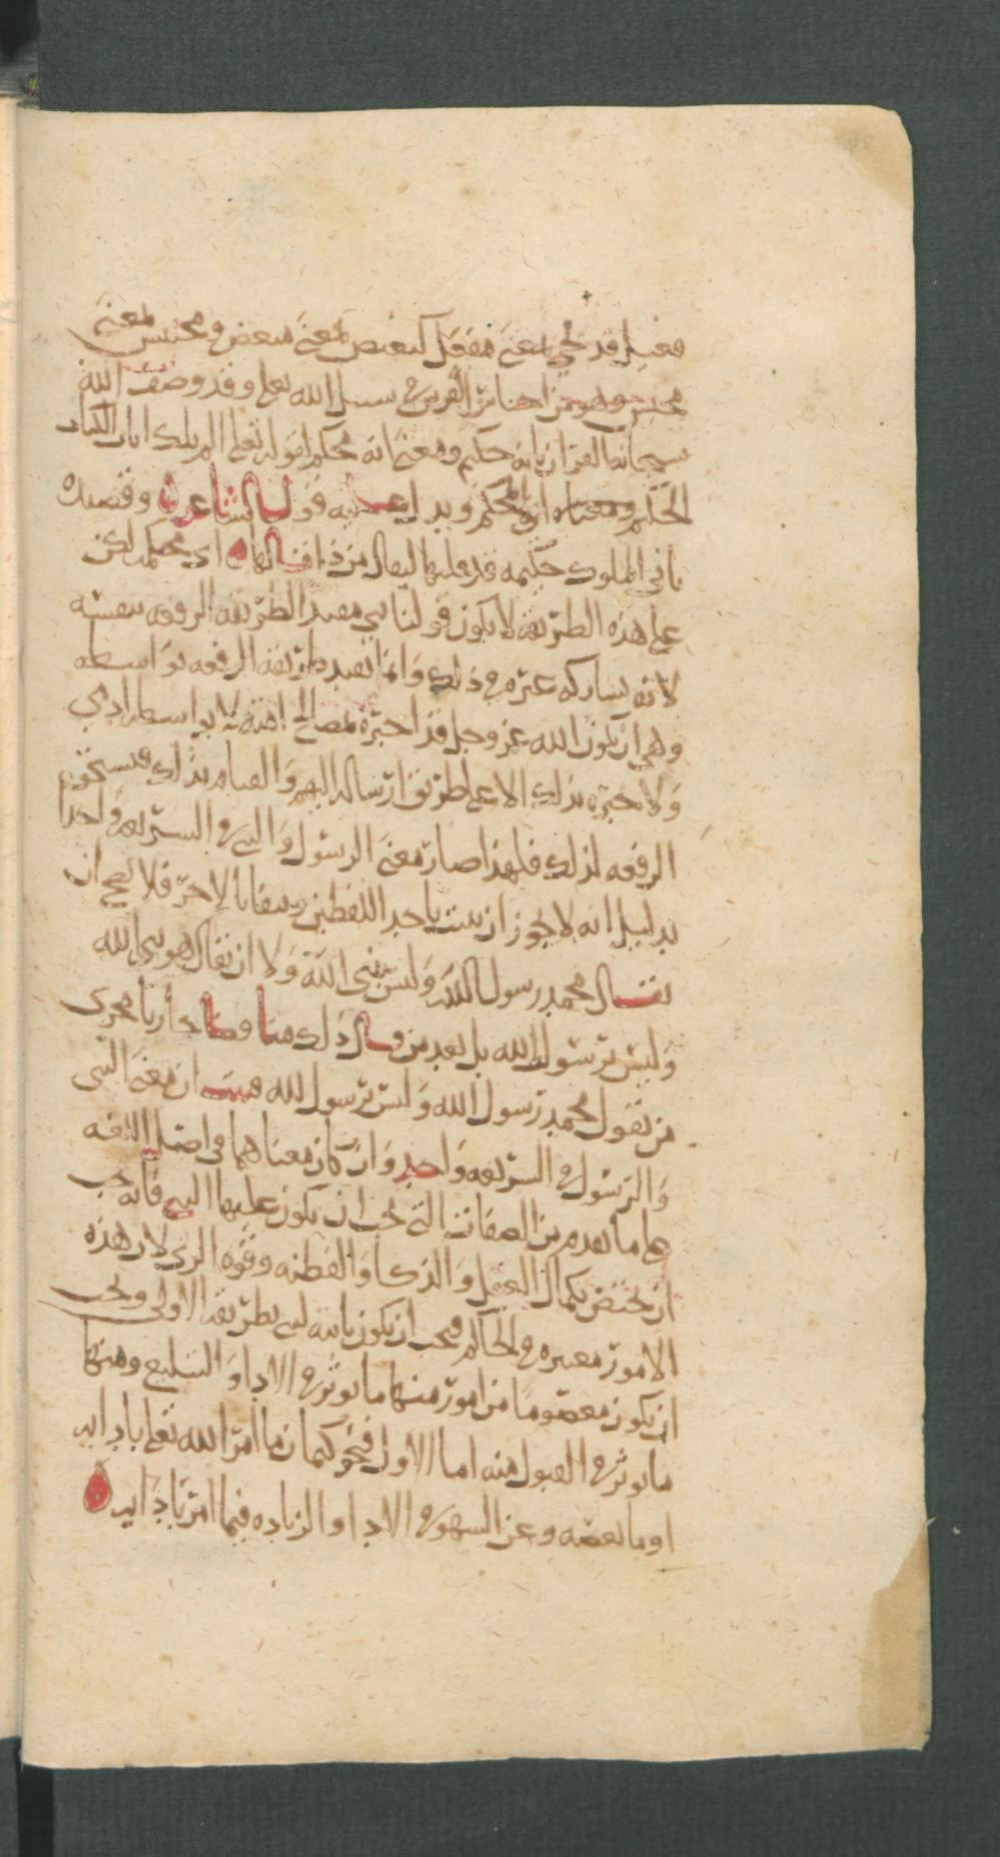 فعيل قد يجي بمعنى مفعل كبعيض بمعنى مبعض وحبيس بمعنى
محبس وهو من احباس الفرس في سبيل الله تعالى وقد وصف الله
سبحانه القران بانه حكيم ومعنى انه محكم لقوله تعالى الم تلك ايات الكتاب
الحكيم ومعناه اي المحكم ويدل عليه قول الشاعر وقصيدة
تاتي الملوك حكيمة قد قلتها ليقال من ذا قالها اي محكمة لكن
على هذه الطريقة لا يكون قولنا نبي مفيد الطريقة الرفعه بنفسه
لانه يشاركه غيره في ذلك وانما يفيد طريقة الرفعه بواسطه
وهي ان يكون الله عز وجل قد اخبره بمصالح امته لا بواسطة ادمي
ولا يخبره بذلك الا على طريق ارساله اليهم والقيام بذلك فيستحق
الرفعه لذلك فلهذا صار معنى الرسول والنبي في الشريعه واحدا
بدليل انه لا يجوز ان يثبت باحد اللفظين وينفا بالاخر فلا يصح ان
يقال محمد رسول الله وليس بنبي الله ولا ان يقال هو نبي الله
وليس برسول الله بل يعد من قال ذلك مناقضا جاريا مجرى
من يقول محمد رسول الله وليس برسول لله فثبت ان معنى النبي
والرسول في الشريعه واحد وان كان معناهما في اصل اللغه
على ما تقدم من الصفات التي يجب ان يكون عليها النبي فانه يجب
ان يختص بكمال العقل والذكا والفطنه وقوه الراي لان هذه
الامور معتبره في الحاكم فيجب ان يكون ثابته لنبي بطريقة الاولى ويجب
ان يكون معصوما من امور منها ما يوثر في الادا والتبليغ ومنها
ما يوثر في القبول منه اما الاول فنحو كتمان ما امر الله تعالى بادايه
او ما بعضه وعن السهو في الادا والزياده فيما امر بادايه